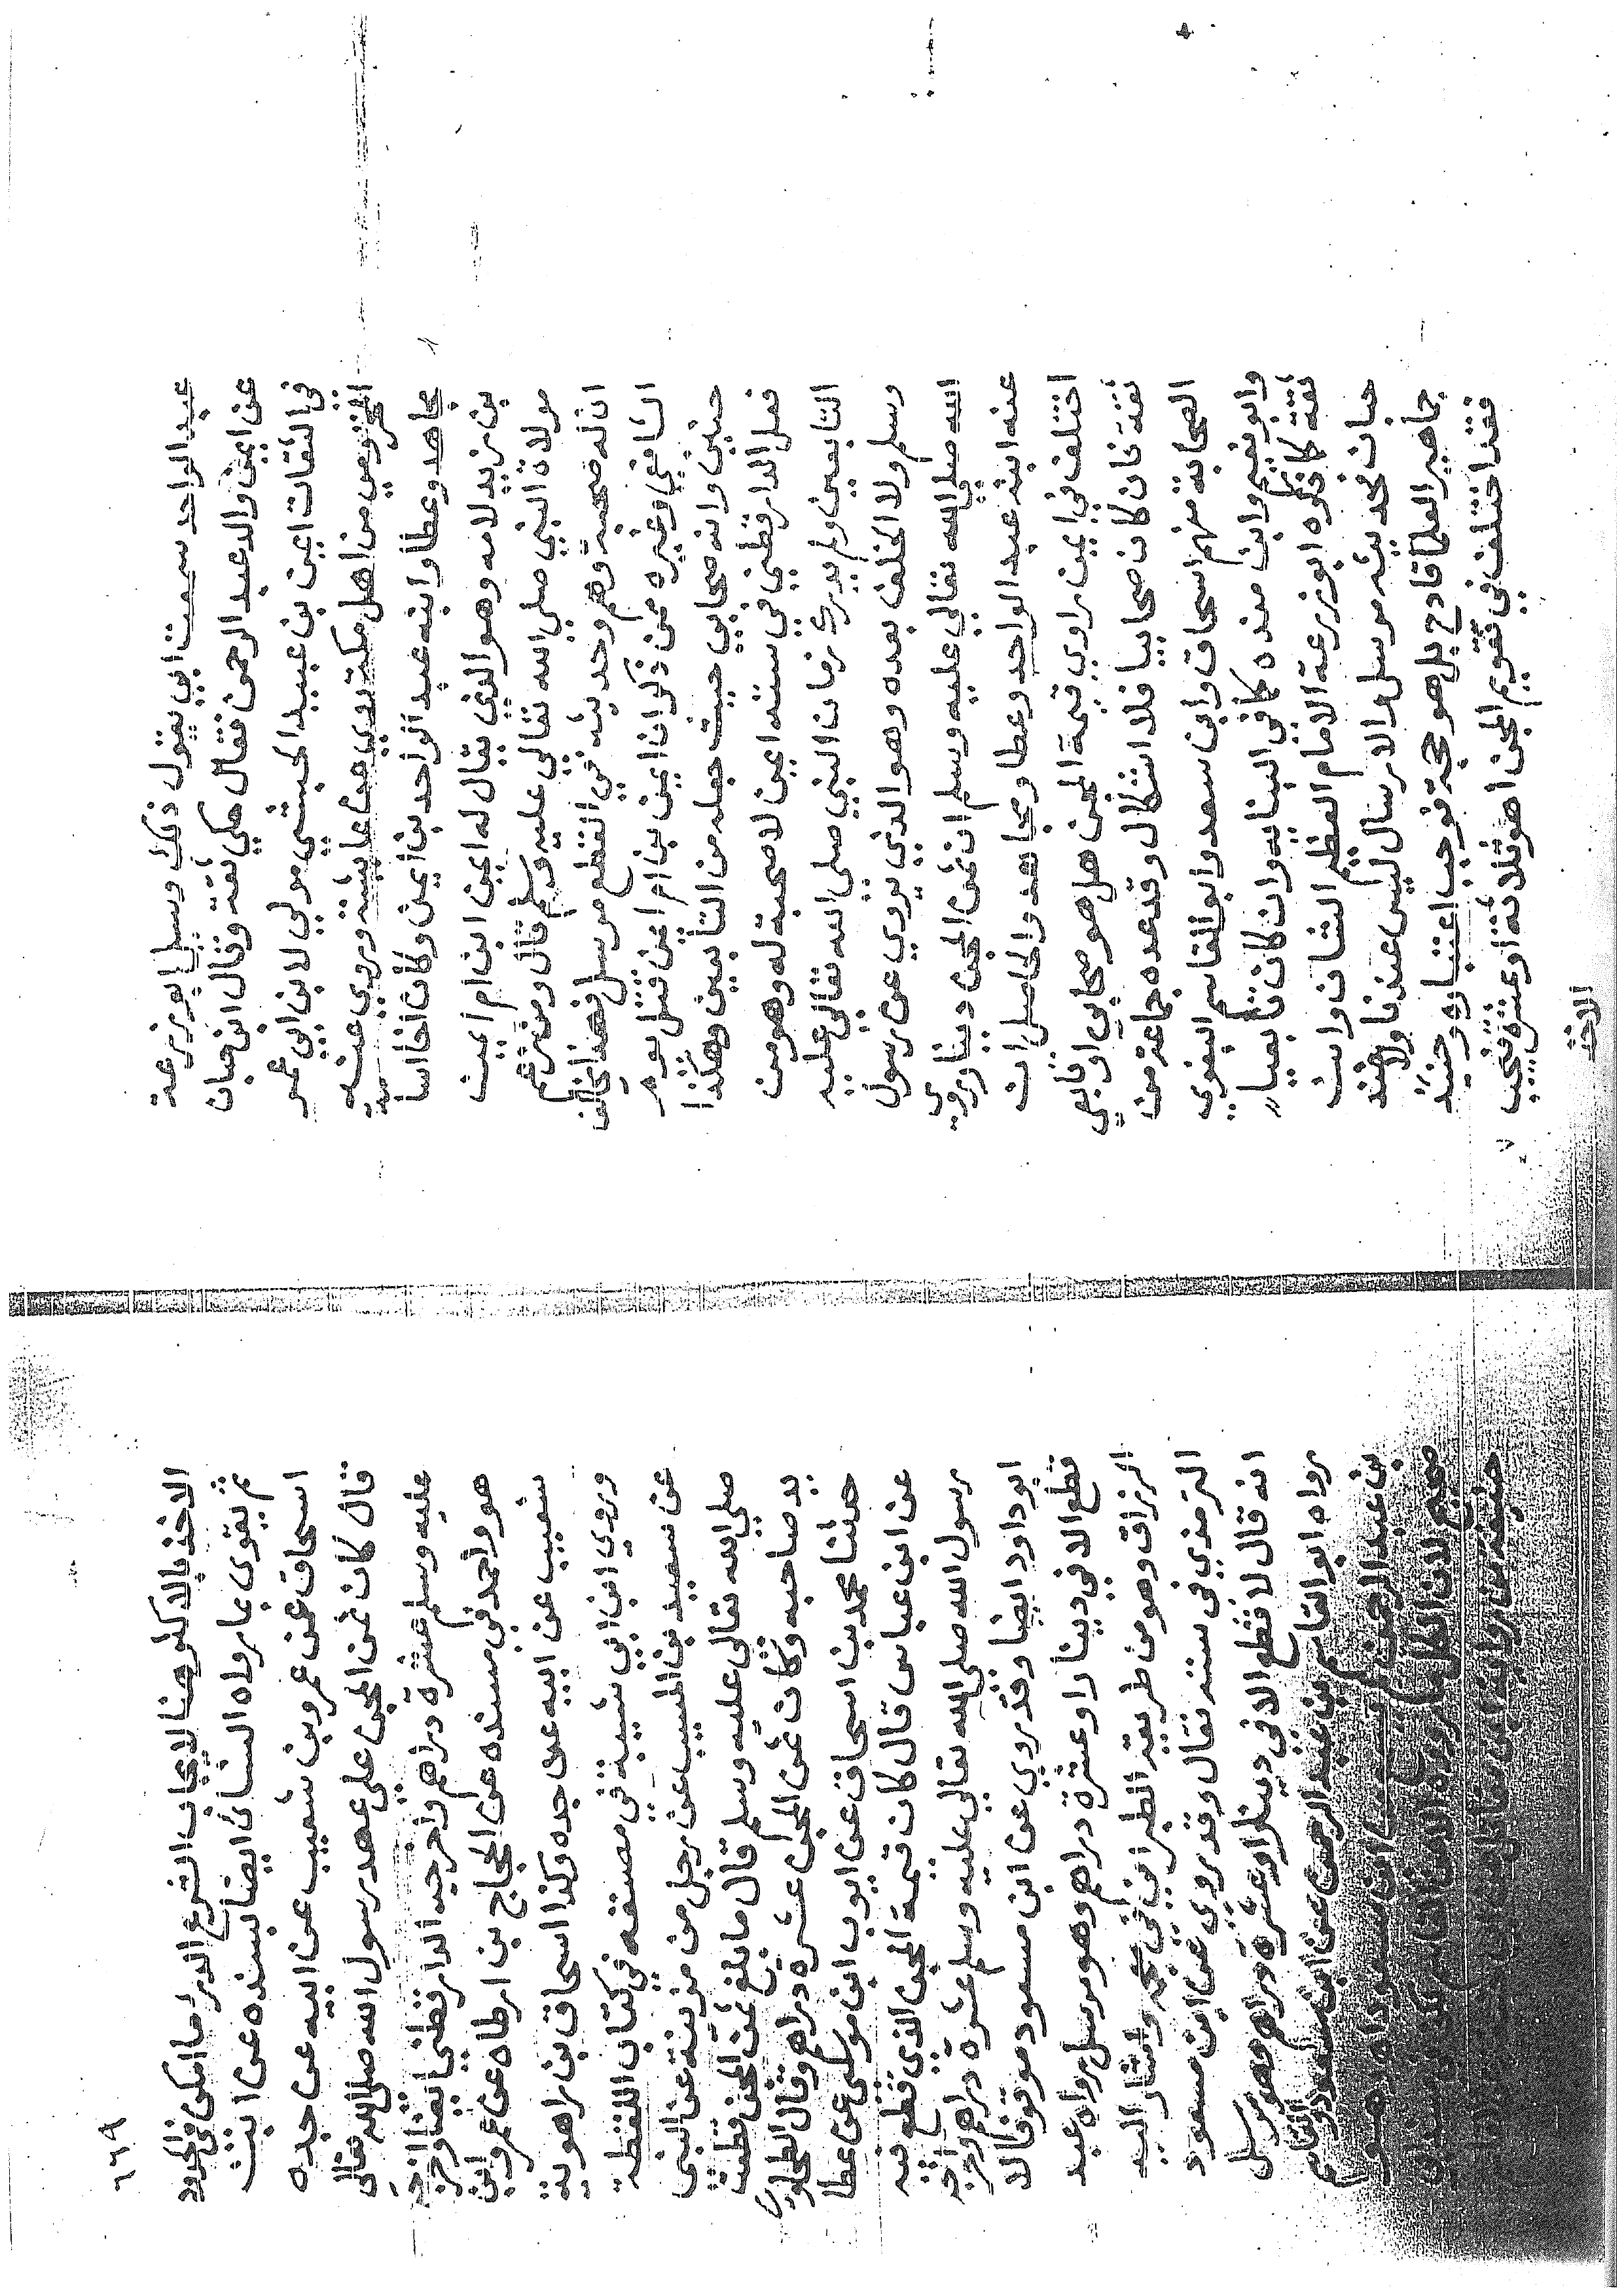 عبد الواحد سمعت ابي يقول ذلك وسيل ابو زرعة
عن ايمن والد عبد الرحمن فقال مكي ثقة وقال ابن حبان
في الثقات ايمن بن عبيد الحبشي مولي لابن ابي عمر
المخزومي من اهل مكة يروي عن عايشة وروي عنه
مجاهد وعطا وابنه عبد الواحد بن ايمن وكان اخا اسا مة
بن زيد لامه وهو الذي يقال له ايمن ابن ام ايمن
مولاة النبي صلي الله تعالي عليه وسلم قال ومن زعم
ان له صحبة وهم وحديثه في القطع مرسل فهذا يخالف
الشافعي وغيره ممن ذكر ان ايمن بن ام ايمن قتل يوم
حنين وانه صحابي حيث جعله من التابعين وهكذا
فعل الدارقطني في سننه ايمن لا صحبة له وهو من
التابعين ولم يدرك زمان النبي صلي الله تعالي عليه
وسلم ولا الخلف بعده وهو الذي يروي عن رسول
الله صلي الله تعالي عليه وسلم ان ثمن المجن دينار وروي
عنه ابنه عبد الواحد وعطا ومجاهد والحاصل ان
اختلف في ايمن راوي قيمة المجن هل هو صحابي او تابعي
ثقة فان كان صحابيا فلا اشكال وقد عده جماعة من
الصحابة منهم اسحاق وابن سعد وابو القاسم البغوي
وابو نعيم وابن منده كما في البنايه وان كان تابعيا
ثقة كما ذكره ابو زرعة الامام العظيم الشان وابن
حبان فحديثه مرسل والارسال ليس عندنا ولا عند
جماهير العلما قادح بل هو حجة فوجب اعتباره وحينئذ
فقد اختلف في تقويم المجن اهو ثلاثة او عشرة فيجب
الاخذ
٦٦٩
الاخذ بالاكثر هنا لايجاب الشرع الدرا ما امكن في الحدود
ثم يقوي بما رواه النسائ ايضا بسنده عن ابن
اسحاق عن عمرو بن شعيب عن ابيه عن جده
قال كان ثمن المجن علي عهد رسول الله صلي الله تعالي
عليه وسلم عشرة دراهم واخرجه الدارقطني ايضا واخرجه
هو واحمد في مسنده عن الحجاج بن ارطاه عن عمرو ابن
شعيب عن ابيه عن جده وكذا اسحاق بن راهوية
وروي ابن ابي شيبة في مصنفه في كتاب اللقطة
عن سعيد بن المسيب عن رجل من مزينة عن النبي
صلي الله تعالي عليه وسلم قال ما بلغ ثمن المجن قطعت
يد صاحبه وكان ثمن المجن عشره دراهم وقال الطحاوي
حدثنا محمد بن اسحاق عن ايوب ابن موسي عن عطا
عن ابن عباس قال كان قيمة المجن الذي قطع فيه
رسول الله صلي الله تعالي عليه وسلم عشرة دراهم واخرجه
ابو داود ايضا وقد روي عن ابن مسعود موقوفا لا
قطع الا في دينار او عشرة دراهم وهو مرسل رواه عبد
الرزاق وهو من طريقه الطبراني في معجمه واشار اليه
الترمذي في سننه فقال وقد روي عن ابن مسعود
انه قال لا قطع الا في دينار او عشرة دراهم وهو مرسل
رواه ابو القاسم بن عبد الرحمن عن ابن مسعود والقاسم
بن عبد الرحمن لم يسمع من ابن مسعود
صحيح لان الكل ما رووه الا عن القاسم
حنيفة من رواية